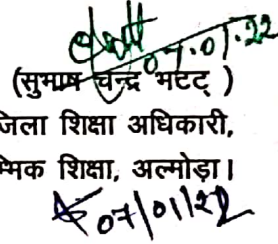 07.01.22
(सुभाष चन्द्र भटट् )
जिला शिक्षा अधिकारी,
म्भिक शिक्षा, अल्मोड़ा।
07/01/22